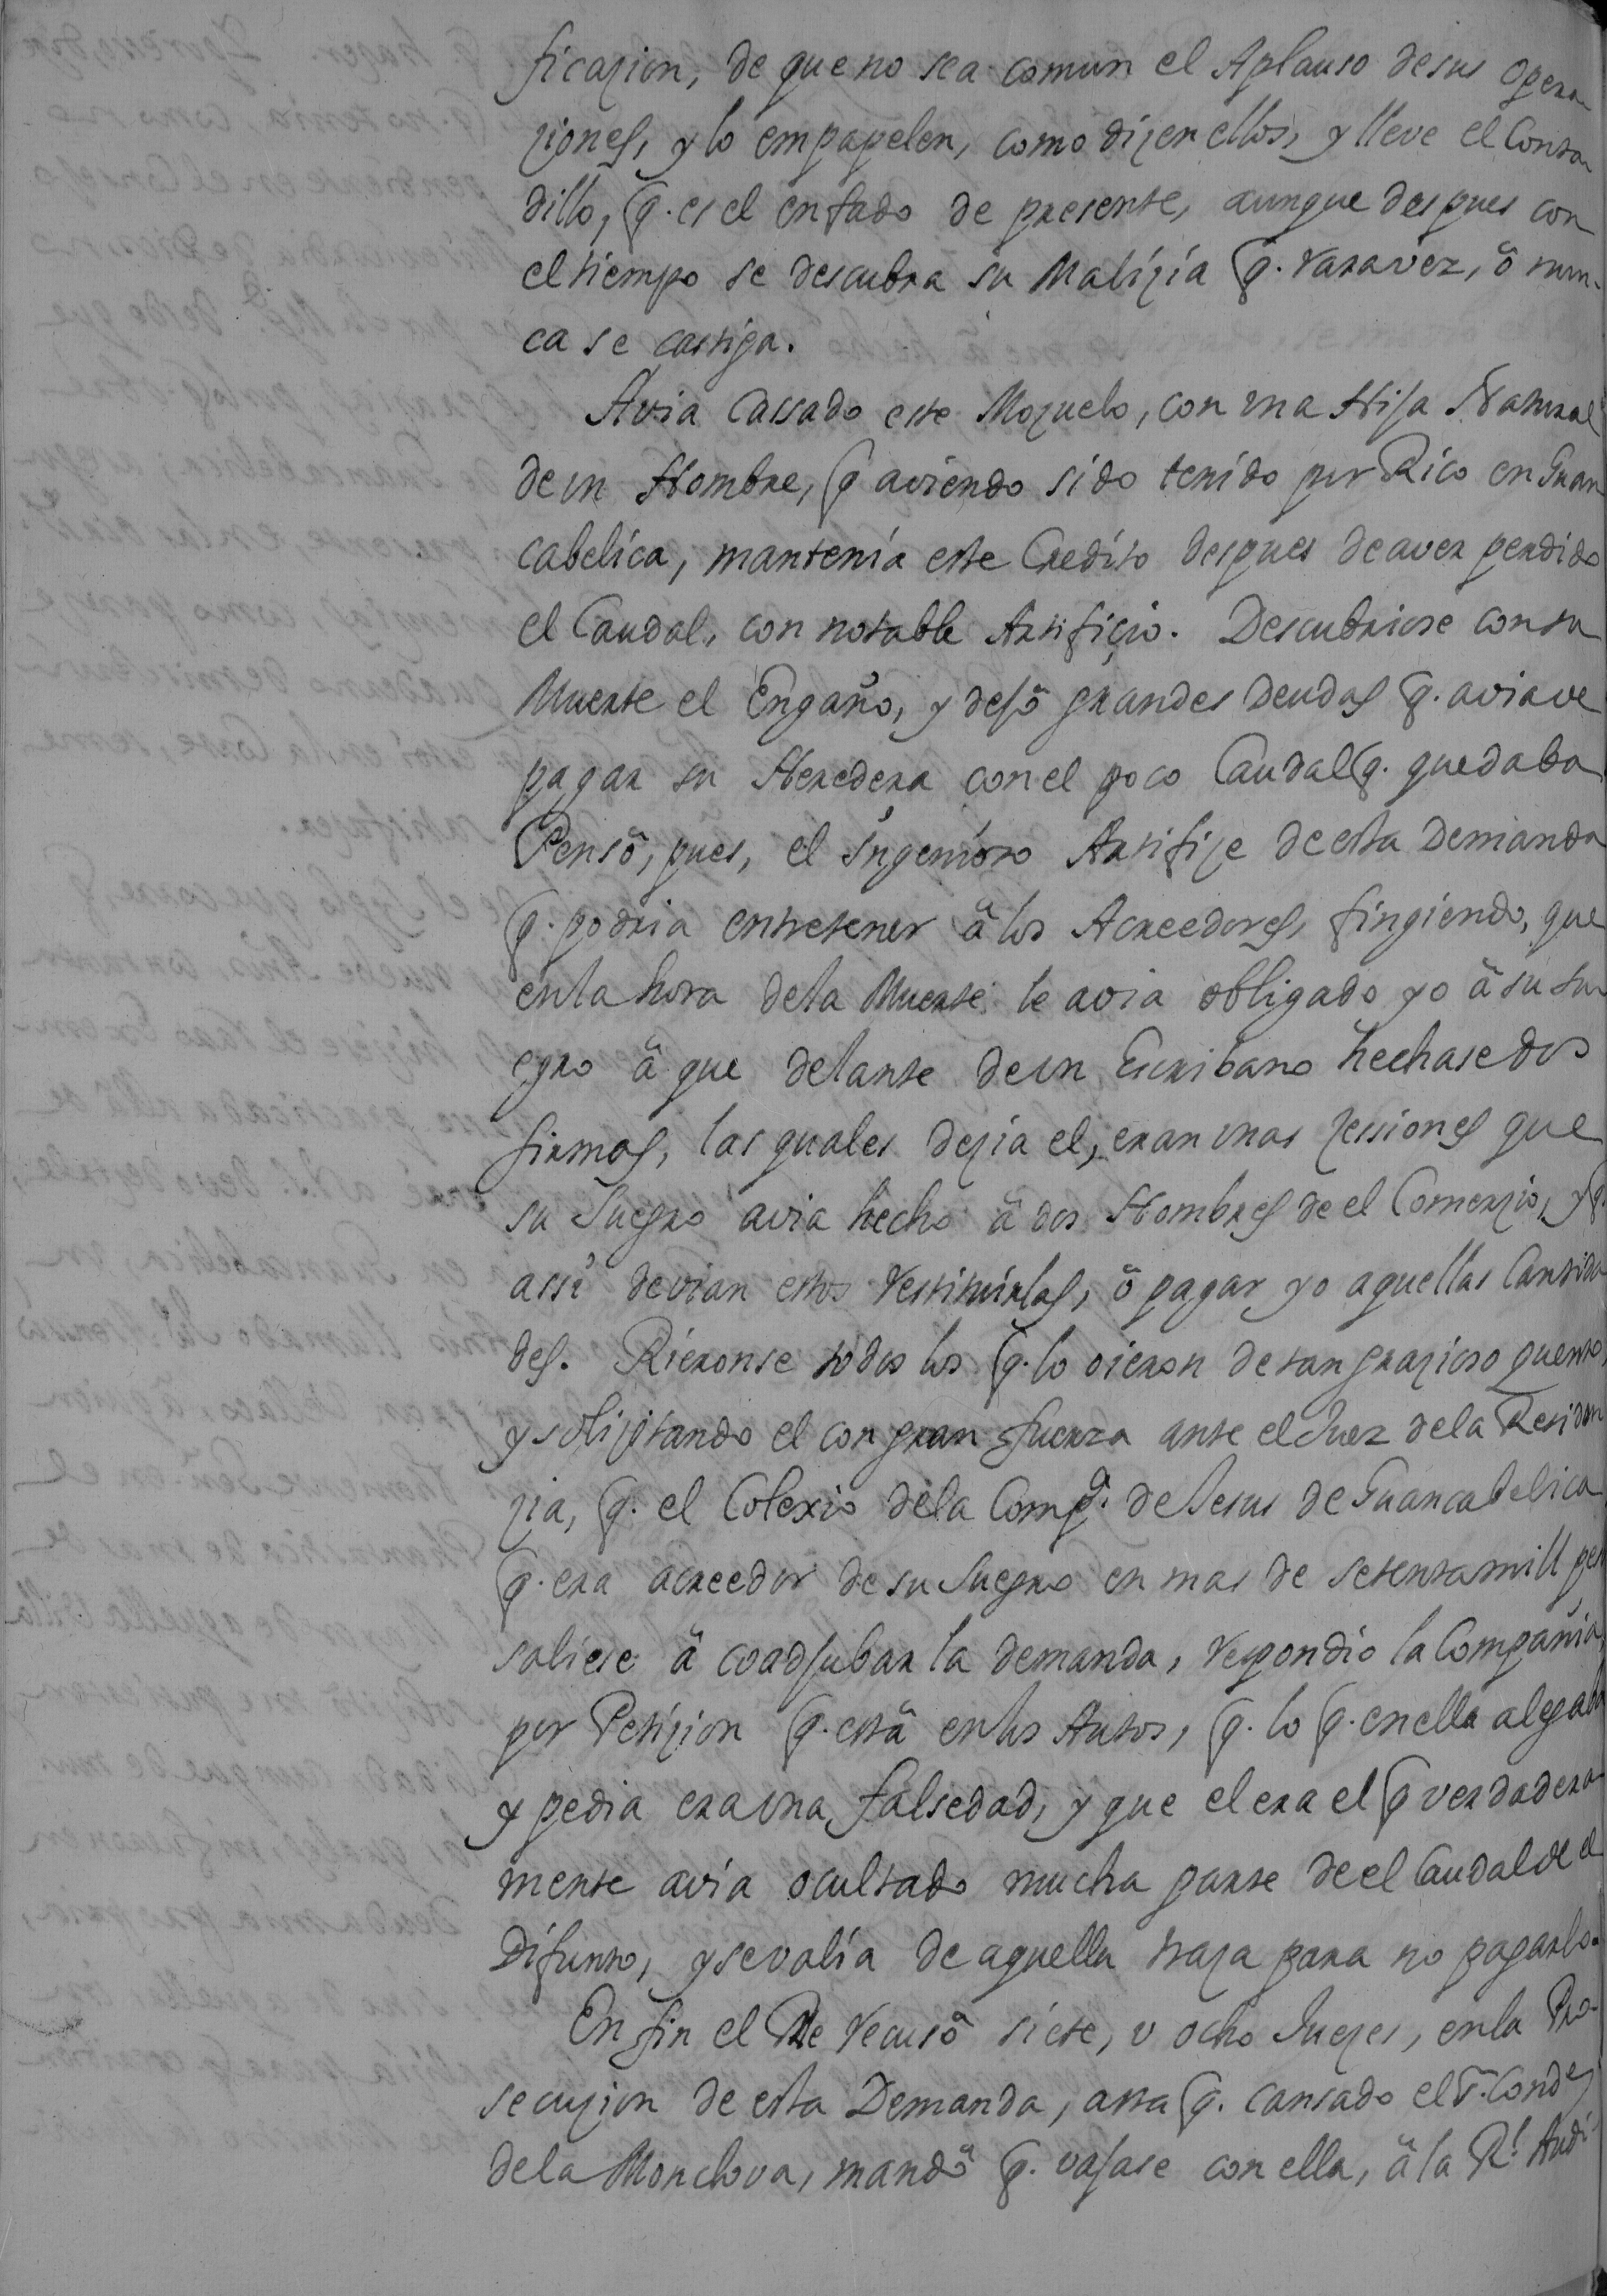 ficazion, de que no sea comun el Aplauso de sus opera-
ziones, y lo empapelen, como dizen ellos, y lleve el Conta-
dillo, q. es el enfado de presente, aunque despues con
el tiempo se descubra su Malizia q. rara vez, ô nun-
ca se castiga.
Avia Cassado este Mozuelo, con vna Hija Natural
de vn Hombre, q aviendo sido tenido por Rico en Guan
cabelica, mantenia este Credito despues de aver perdido
el Caudal, con notable Artifiçio. Descubriose con su
Muerte el Engaño, y dejô grandes Deudas q. avia ve
pagar su Heredera con el poco Caudal q. quedaba
Pensô, pues, el ingenioso Artifize de esta Demanda
q. podria entretener â los Acreedores, fingiendo, que
en la hora de la Muerte le avia obligado yo â su Su-
egro â que delante de vn Escribano hechase dos
firmas, las quales dezia el, eran vnas zessiones que
su Suegro avia hecho â dos Hombres de el Comerzio, y q.
assi devian estos restituirlas, ô pagar yo aquellas Cantida
des. Rieronse todos los q. lo oieron de tan grazioso quento,
y solizitando el con gran fuerza ante el Juez de la Residen
zia, q. el Colexio de la Compª. de Jesus de Guancabelica
q. era acreedor de su Suegro en mas de setenta mill pes
saliese â coadjubar la demanda, respondio la Compañia,
por Petizion q. estâ en los Autos, q. lo q. en ella alegaba
y pedia era vna falsedad, y que el era el q verdadera-
mente avia ocultado mucha parte de el Caudal de el
Difunto, y se valia de aquella traza para no pagarlo.
En fin el Rᵉ recusô siete, v ocho Juezes, en la Pro-
secuzion de esta Demanda, asta q. cansado el Sʳ. Conde
de la Monclova, mandô q. vajase con ella, â la Rˡ. Audi-